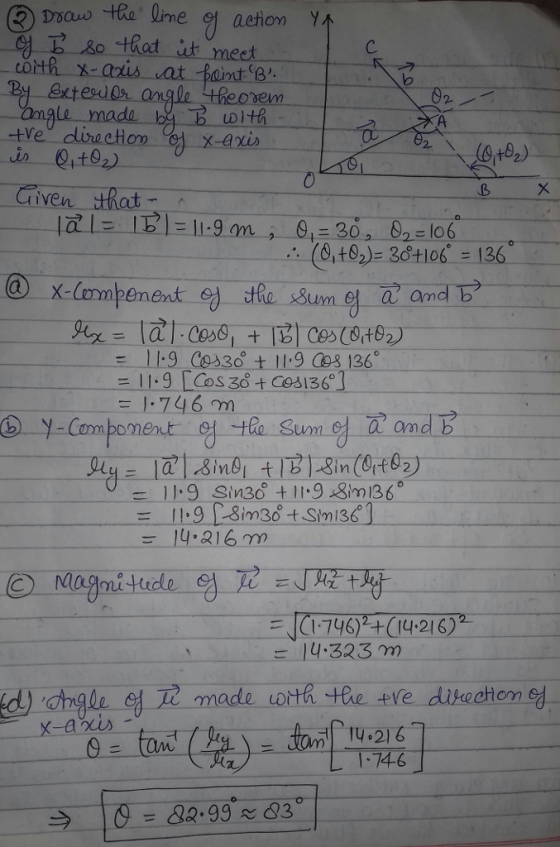 ② Draw the line of action
of b⃗ so that it meet
with x-axis at point 'B'.
By exterior angle theorem
angle made by b⃗ with
+ve direction of x-axis
is (θ₁+θ₂)
Y
C
b⃗
θ₂
A
a⃗
θ₂
θ₁
(θ₁+θ₂)
O
B
X
Given that-
|a⃗| = |b⃗| = 11.9 m ; θ₁=30°, θ₂=106°
∴ (θ₁+θ₂)= 30°+106° = 136°
ⓐ X-Component of the sum of a⃗ and b⃗
rₓ = |a⃗|.cosθ₁ + |b⃗| cos(θ₁+θ₂)
= 11.9 cos30° + 11.9 cos 136°
= 11.9 [cos30° + cos136°]
= 1.746 m
ⓑ Y-Component of the sum of a⃗ and b⃗
r_y = |a⃗| sinθ₁ + |b⃗| sin(θ₁+θ₂)
= 11.9 sin30° + 11.9 sin136°
= 11.9 [sin30° + sin136°]
= 14.216 m
ⓒ Magnitude of r⃗ = √(rₓ² + r_y²)
= √((1.746)²+(14.216)²)
= 14.323 m
(d) Angle of r⃗ made with the +ve direction of
x-axis-
θ = tan⁻¹ (r_y/rₓ) = tan⁻¹ [14.216/1.746]
⇒ θ = 82.99° ≈ 83°